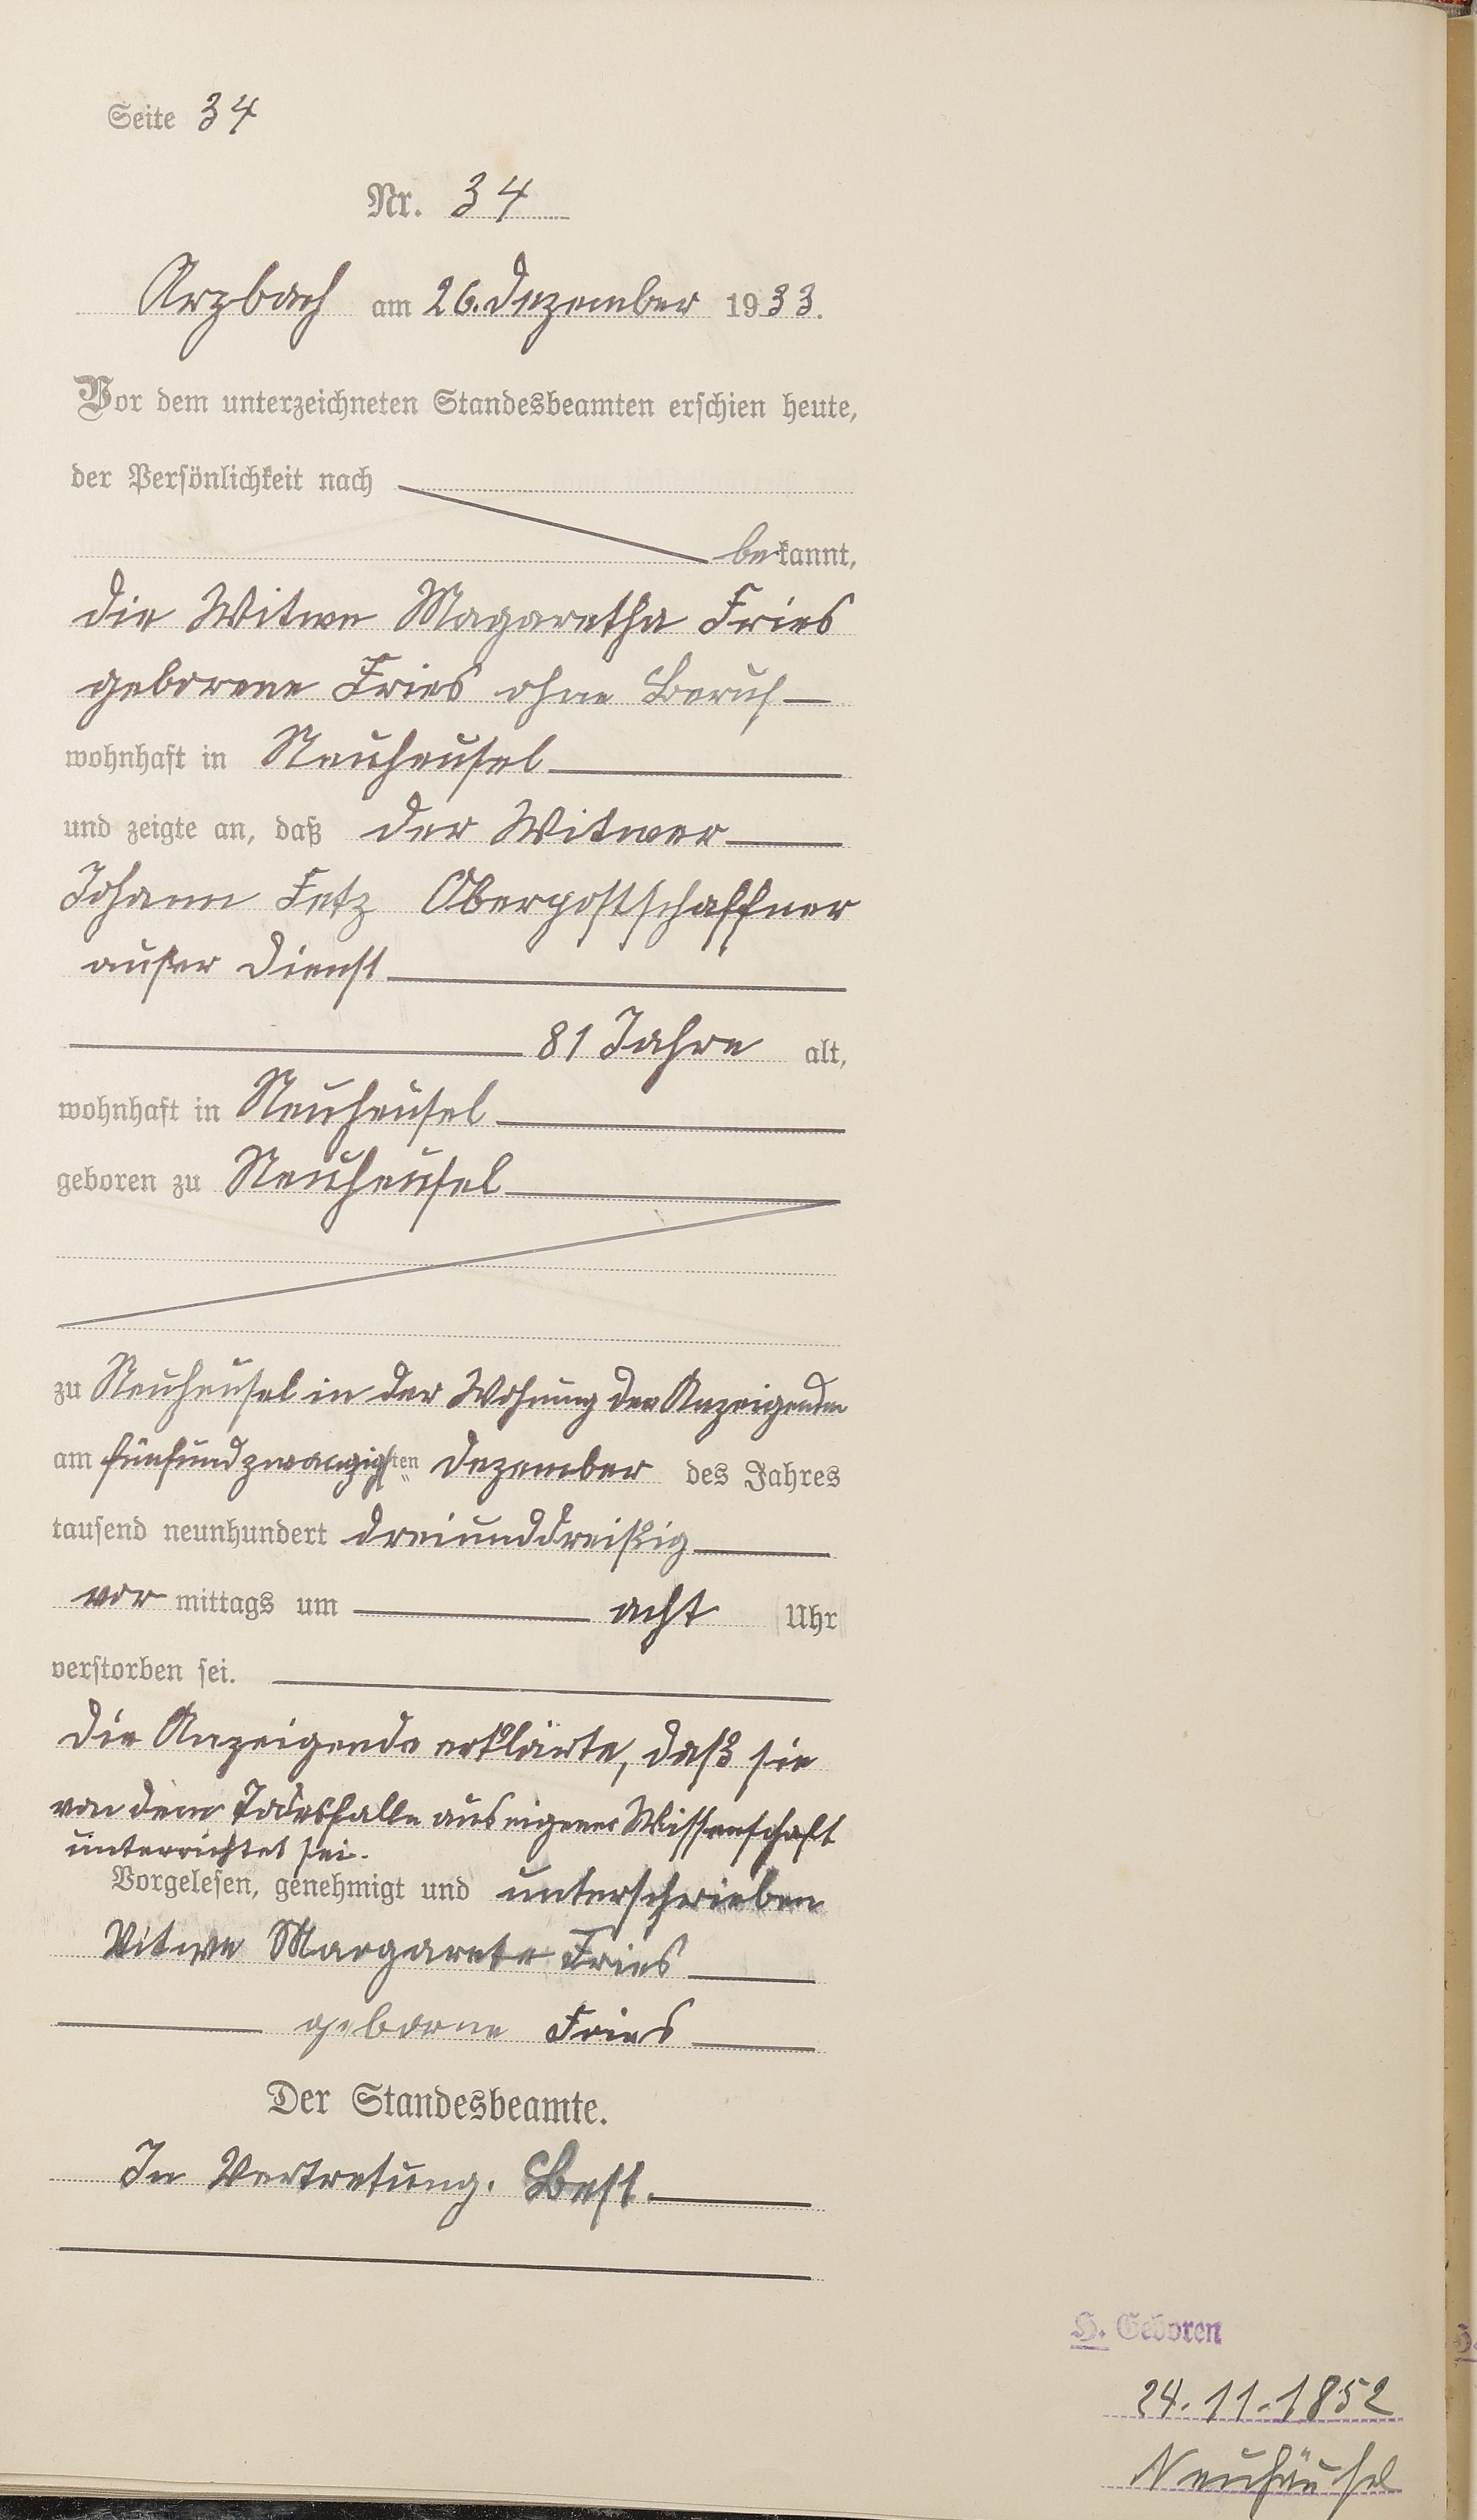 Seite 34
Nr. 34
Arzbach am 26. Dezember 1933.
Vor dem unterzeichneten Standesbeamten erschien heute,
der Persönlichkeit nach
bekannt,
die Witwe Magaretha Fries
geborene Fries ohne Beruf
wohnhaft in Neuheusel
und zeigte an, daß der Witwer
Johann Fetz Oberpostschaffner
außer Dienst
81 Jahre alt,
wohnhaft in Neuheusel
geboren zu Neuheusel
zu Neuheusel in der Wohnung der Anzeigenden
am fünfundzwanzigsten Dezember des Jahres
tausend neunhundert dreiunddreißig
vor mittags um acht Uhr
verstorben sei.
Die Anzeigende erklärte, daß sie
von dem Todesfalle aus eigener Wissenschaft
unterrichtet sei.
Vorgelesen, genehmigt und unterschrieben
Witwe Margarete Fries
geborne Fries
Der Standesbeamte.
In Vertretung. Best.
H. Geboren
24.11.1852
Neuhäusel